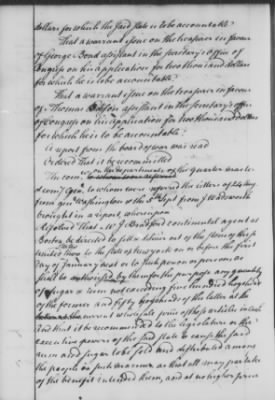 dollars for which the said state is to be accountable.
That a warrant issue on the treasurer in favour
of George Bond assistant in the secretary's office of
Congress on his application for two thousand dollars
for which he is to be accountable.
That a warrant issue on the treasurer in favour
of Thomas assistant in the secretary's office
of congress on his application for two thousand dollars
for which he is to be accountable.
A report from the board of war was read
Ordered That it be recommitted
The comee on the departments of the quarter master
& comy Gen. to whom were referred the letters of 24 Augt
from genl Washington & the 5th Sept from J Wadsworth
brought in a report, whereupon
Resolved That Mr J Bradford continental agent at
Boston be directed to sell & deliver out of the stores of these
united States to the state of new york on or before the first
day of January next or to such person or persons as
shall be authorised by them for the purpose any quantity
of sugar & rum not exceeding five hundred hogsheds
of the former and fifty hogsheds of the latter at the
current wholesale price of those articles in cash
And that it be recommended to the legislature or the
executive powers of the said state to cause the said
rum and sugar to be sold and distributed among
the people in such manner as that all may partake
of the benefit intended them, and at no higher price